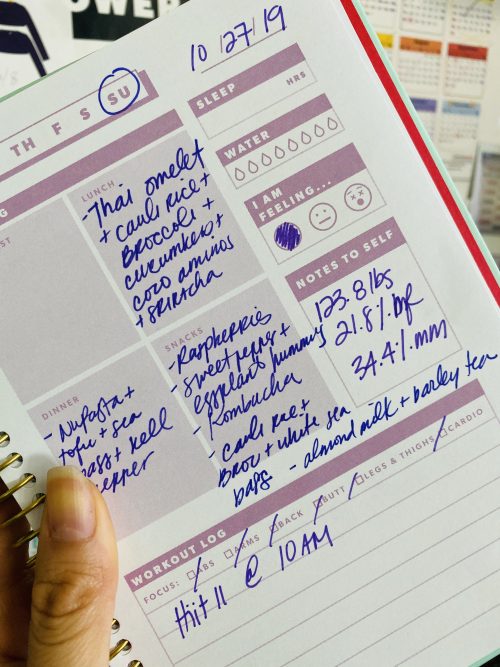 POWER
10/27/19
TH F S SU
SLEEP
HRS
WATER
I AM
FEELING...
NOTES TO SELF
123.8 lbs
21.8% bf
34.4% mm
LUNCH
-Thai omelet
+ cauli rice +
Broccoli +
cucumbers +
coco aminos
+ SRIRACHA
SNACKS
-Raspberries
-sweet pepper +
eggplant hummus
-Kombucha
- cauli rice +
Brow + white sea
bass
- almond milk + barley tea
DINNER
- Nupasta +
tofu + sea
bass + bell
pepper
WORKOUT LOG
FOCUS: ABS ARMS BACK BUTT LEGS & THIGHS CARDIO
Hiit 11 @ 10 AM